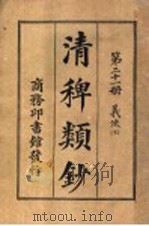 第二十一册 義俠
清稗類鈔
商務印書館發行